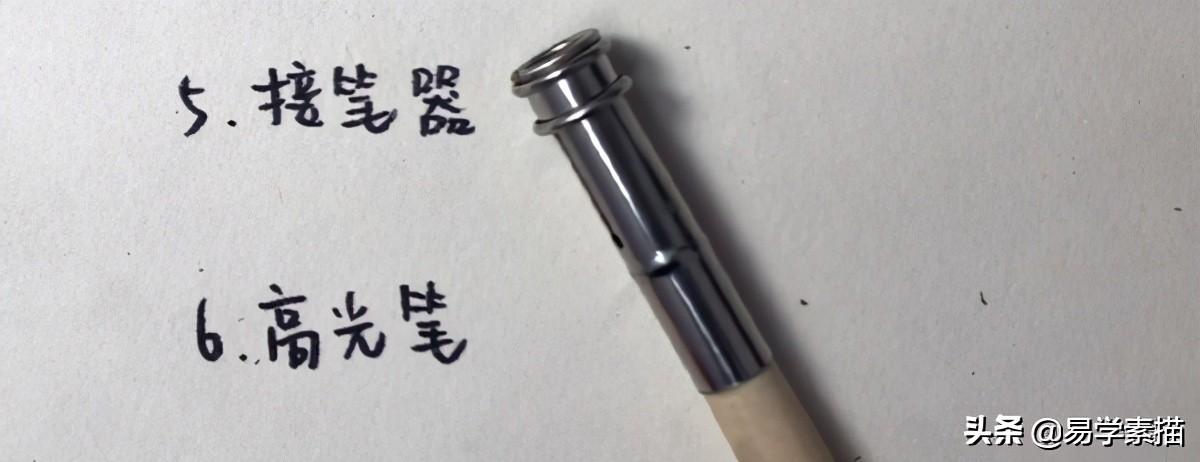 5.接笔器
6.高光笔
头条 @易学素描